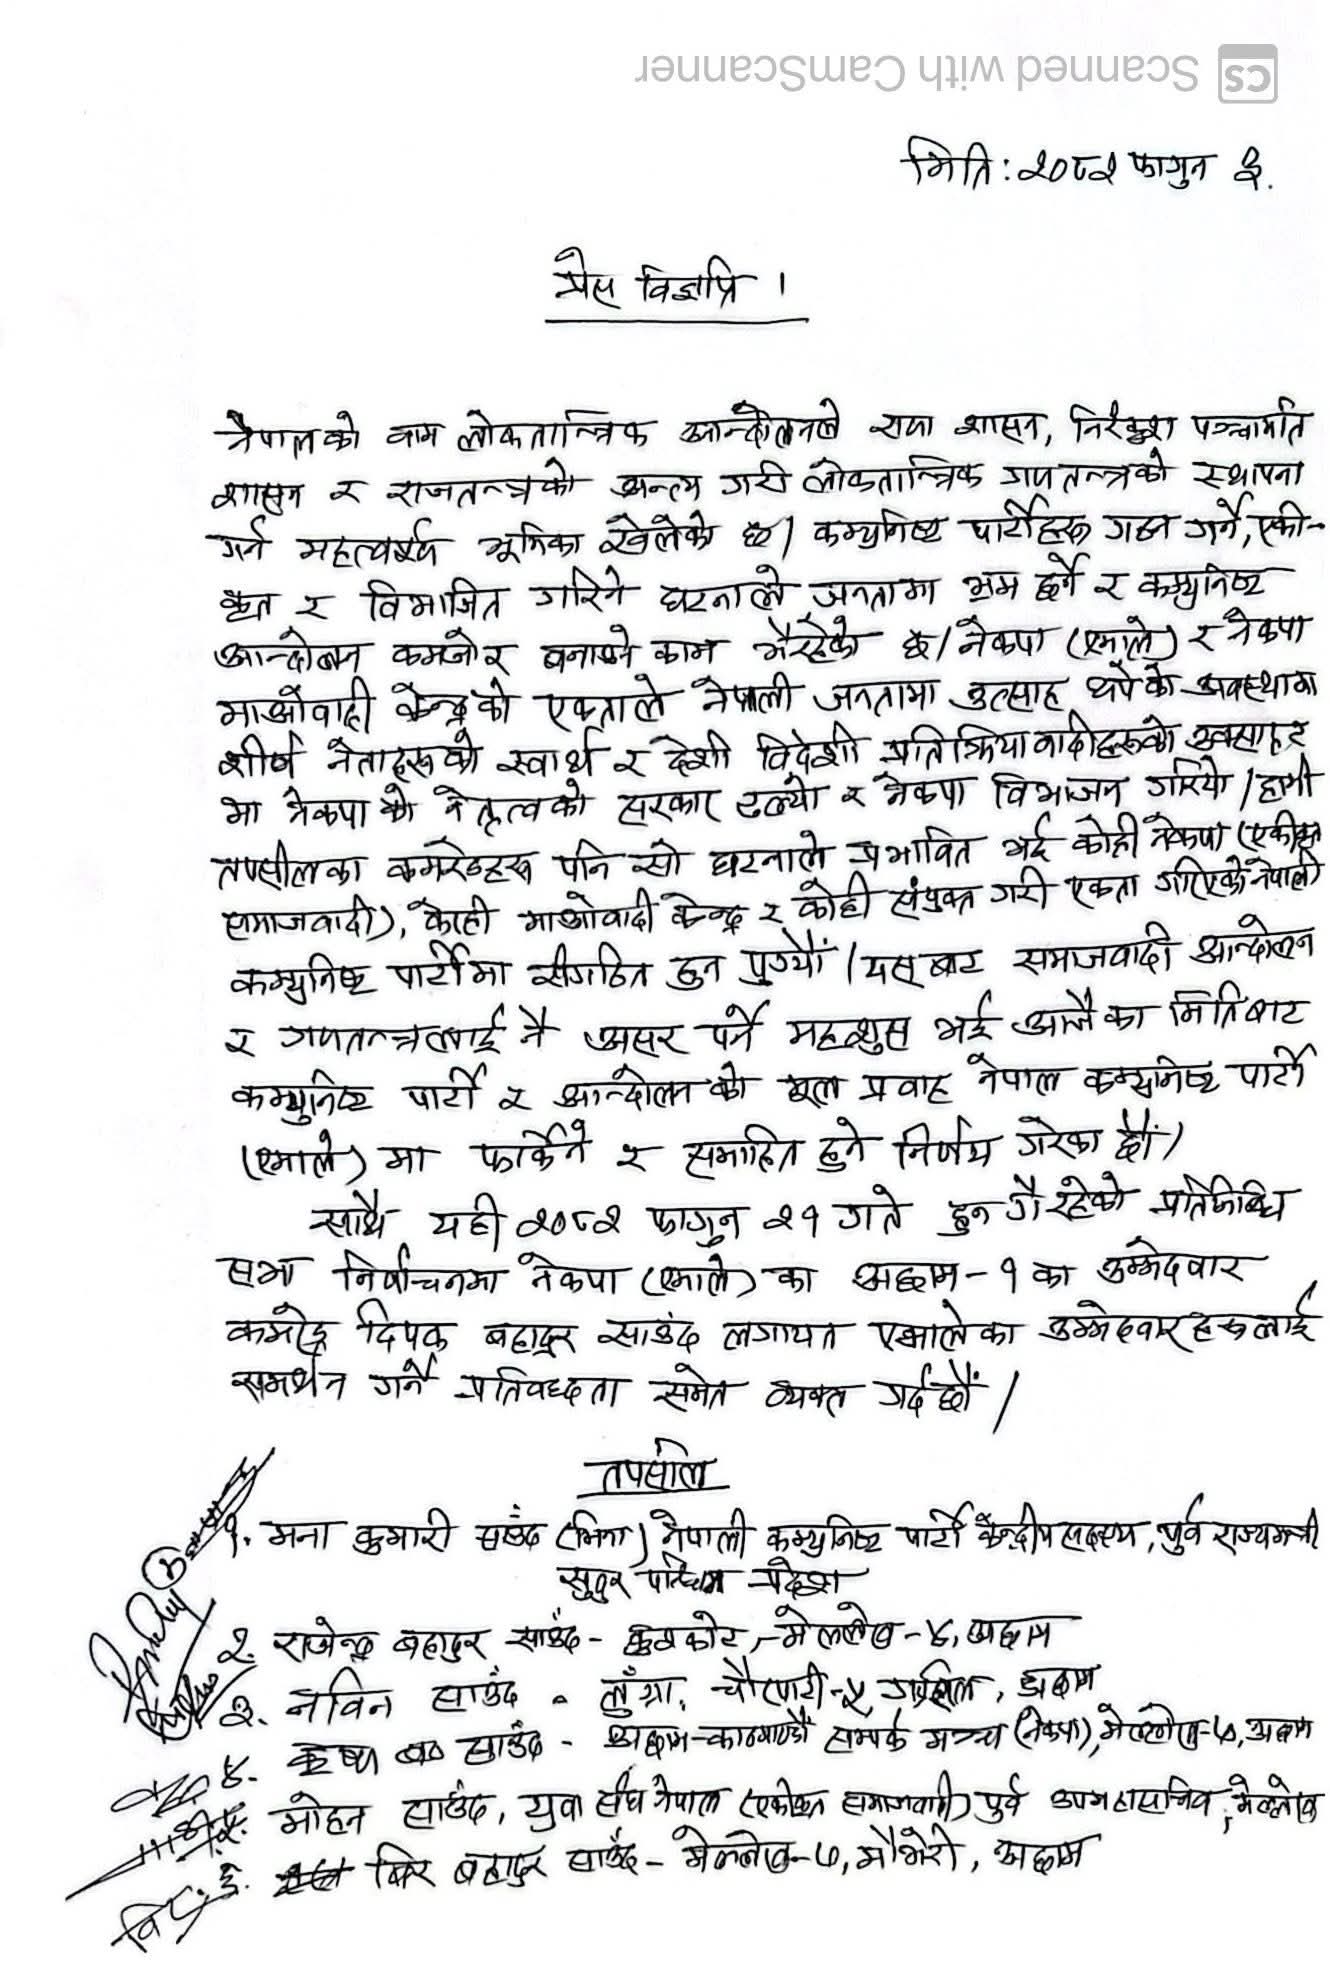 Scanned with CamScanner
मिति : २०८२ फागुन ३.
प्रेस विज्ञप्ति ।
नेपालको वाम लोकतान्त्रिक आन्दोलनले राणा शासन, निरंकुश पञ्चायति
शासन र राजतन्त्रको अन्त्य गरी लोकतान्त्रिक गणतन्त्रको स्थापना
गर्न महत्वपूर्ण भूमिका खेलेको छ । कम्युनिष्ट पार्टीहरू गठन गर्ने, एकी-
कृत र विभाजित गरिने घटनाले जनतामा भ्रम छर्ने र कम्युनिष्ट
आन्दोलन कमजोर बनाउने काम भैरहेको छ । नेकपा (एमाले) र नेकपा
माओवादी केन्द्रको एकताले नेपाली जनतामा उत्साह थपेको अवस्थामा
शीर्ष नेताहरूको स्वार्थ र देशी विदेशी प्रतिक्रियावादीहरूको उक्साहट
मा नेकपा को नेतृत्वको सरकार ढल्यो र नेकपा विभाजन गरियो । हामी
तपसीलका कमरेडहरू पनि सो घटनाले प्रभावित भई कोही नेकपा (एकीकृत
समाजवादी), कोही माओवादी केन्द्र र कोही संयुक्त गरी एकता गरिएको नेपाली
कम्युनिष्ट पार्टीमा संगठित हुन पुग्यौं । यसबाट समाजवादी आन्दोलन
र गणतन्त्रलाई नै असर पर्ने महशुस भई आजैका मितिबाट
कम्युनिष्ट पार्टी र आन्दोलनको मूल प्रवाह नेपाल कम्युनिष्ट पार्टी
(एमाले) मा फर्किने र समाहित हुने निर्णय गरेका छौं ।
साथै यही २०८२ फागुन २१ गते हुन गैरहेको प्रतिनिधि
सभा निर्वाचनमा नेकपा (एमाले) का अछाम - १ का उम्मेदवार
कमरेड दिपक बहादुर साउंद लगायत एमालेका उम्मेदवारहरूलाई
समर्थन गर्ने प्रतिवद्धता समेत व्यक्त गर्दछौं ।
तपसील
१. मना कुमारी साउंद (मिना) नेपाली कम्युनिष्ट पार्टी केन्द्रीय सदस्य, पुर्व राज्यमन्त्री
सुदुर पश्चिम प्रदेश
२. राजेन्द्र बहादुर साउंद - कोट, मेल्लेख - ४, अछाम
३. नविन साउंद - लुँग्रा, चौरपाटी - ५ अछाम
४. कृष्ण ब० साउंद - अछाम-काठमाण्डौ सम्पर्क मञ्च (नेकपा), मेल्लेख - ७, अछाम
५. मोहन साउंद, युवा संघ नेपाल (एकीकृत समाजवादी) पुर्व उपमहासचिव, मेल्लेख
६. बिर बहादुर साउंद - मेल्लेख - ७, मौभेरी, अछाम